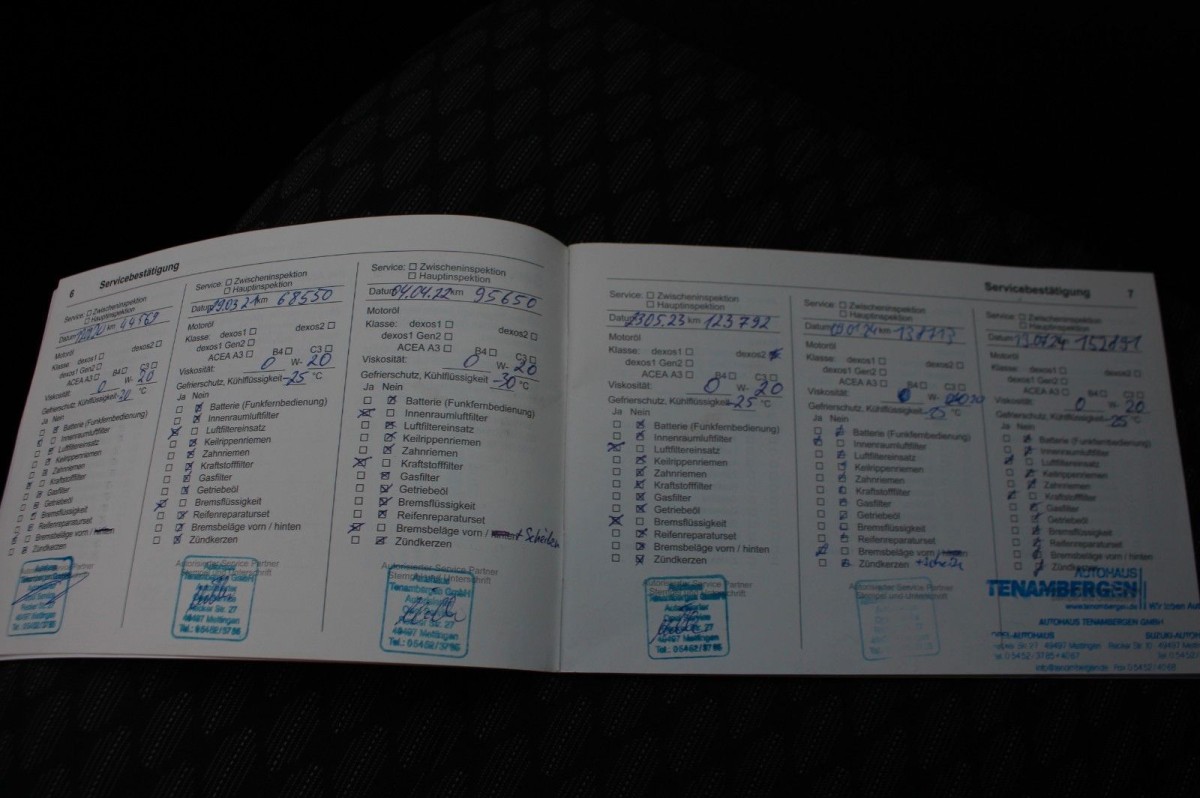 6 Servicebestätigung
Service: Zwischeninspektion
Hauptinspektion
Datum km 44569
Motoröl
Klasse: dexos1 dexos2
dexos1 Gen2
ACEA A3 B4 C3
Viskosität: 0 W- 20
Gefrierschutz, Kühlflüssigkeit °C
Ja Nein
Batterie (Funkfernbedienung)
Innenraumluftfilter
Luftfiltereinsatz
Keilrippenriemen
Zahnriemen
Kraftstofffilter
Gasfilter
Getriebeöl
Bremsflüssigkeit
Reifenreparaturset
Bremsbeläge vorn /
Zündkerzen
Service: Zwischeninspektion
Hauptinspektion
Datum 19.03.21 km 68550
Motoröl
Klasse: dexos1 dexos2
dexos1 Gen2
ACEA A3 B4 C3
Viskosität: 0 W- 20
Gefrierschutz, Kühlflüssigkeit -25 °C
Ja Nein
Batterie (Funkfernbedienung)
Innenraumluftfilter
Luftfiltereinsatz
Keilrippenriemen
Zahnriemen
Kraftstofffilter
Gasfilter
Getriebeöl
Bremsflüssigkeit
Reifenreparaturset
Bremsbeläge vorn / hinten
Zündkerzen
Autorisierter Service Partner
Stempel und Unterschrift
Tenambergen GmbH
Recker Str. 27
49497 Mettingen
Tel.: 05452/3785
Service: Zwischeninspektion
Hauptinspektion
Datum 04.04.22 km 95650
Motoröl
Klasse: dexos1 dexos2
dexos1 Gen2
ACEA A3 B4 C3
Viskosität: 0 W- 20
Gefrierschutz, Kühlflüssigkeit -30 °C
Ja Nein
Batterie (Funkfernbedienung)
Innenraumluftfilter
Luftfiltereinsatz
Keilrippenriemen
Zahnriemen
Kraftstofffilter
Gasfilter
Getriebeöl
Bremsflüssigkeit
Reifenreparaturset
Bremsbeläge vorn / + Scheiben
Zündkerzen
Autorisierter Service Partner
Stempel und Unterschrift
Tenambergen GmbH
49497 Mettingen
Tel.: 05452/3785
Servicebestätigung 7
Service: Zwischeninspektion
Hauptinspektion
Datum 23.05.23 km 123792
Motoröl
Klasse: dexos1 dexos2
dexos1 Gen2
ACEA A3 B4 C3
Viskosität: 0 W- 20
Gefrierschutz, Kühlflüssigkeit -25 °C
Ja Nein
Batterie (Funkfernbedienung)
Innenraumluftfilter
Luftfiltereinsatz
Keilrippenriemen
Zahnriemen
Kraftstofffilter
Gasfilter
Getriebeöl
Bremsflüssigkeit
Reifenreparaturset
Bremsbeläge vorn / hinten
Zündkerzen
Autorisierter Service Partner
49497 Mettingen
Tel.: 05452/3785
Service: Zwischeninspektion
Hauptinspektion
Datum 09.01.24 km
Motoröl
Klasse: dexos1 dexos2
dexos1 Gen2
ACEA A3 B4 C3
Viskosität: W-
Gefrierschutz, Kühlflüssigkeit -25 °C
Ja Nein
Batterie (Funkfernbedienung)
Innenraumluftfilter
Luftfiltereinsatz
Keilrippenriemen
Zahnriemen
Kraftstofffilter
Gasfilter
Getriebeöl
Bremsflüssigkeit
Reifenreparaturset
Bremsbeläge vorn /
Zündkerzen
Autorisierter Service Partner
Stempel und Unterschrift
Service: Zwischeninspektion
Hauptinspektion
Datum 19.07.24 km 152891
Motoröl
Klasse: dexos1 dexos2
dexos1 Gen2
ACEA A3 B4 C3
Viskosität: 0 W- 20
Gefrierschutz, Kühlflüssigkeit -25 °C
Ja Nein
Batterie (Funkfernbedienung)
Innenraumluftfilter
Luftfiltereinsatz
Keilrippenriemen
Zahnriemen
Kraftstofffilter
Gasfilter
Getriebeöl
Bremsflüssigkeit
Reifenreparaturset
Bremsbeläge vorn / hinten
Zündkerzen
AUTOHAUS
TENAMBERGEN
www.tenambergen.de
AUTOHAUS TENAMBERGEN GMBH
AUTOHAUS SUZUKI-AUTOH
27 · 49497 Mettingen
05452/3785+4067
info@tenambergen.de Fax 05452/4068